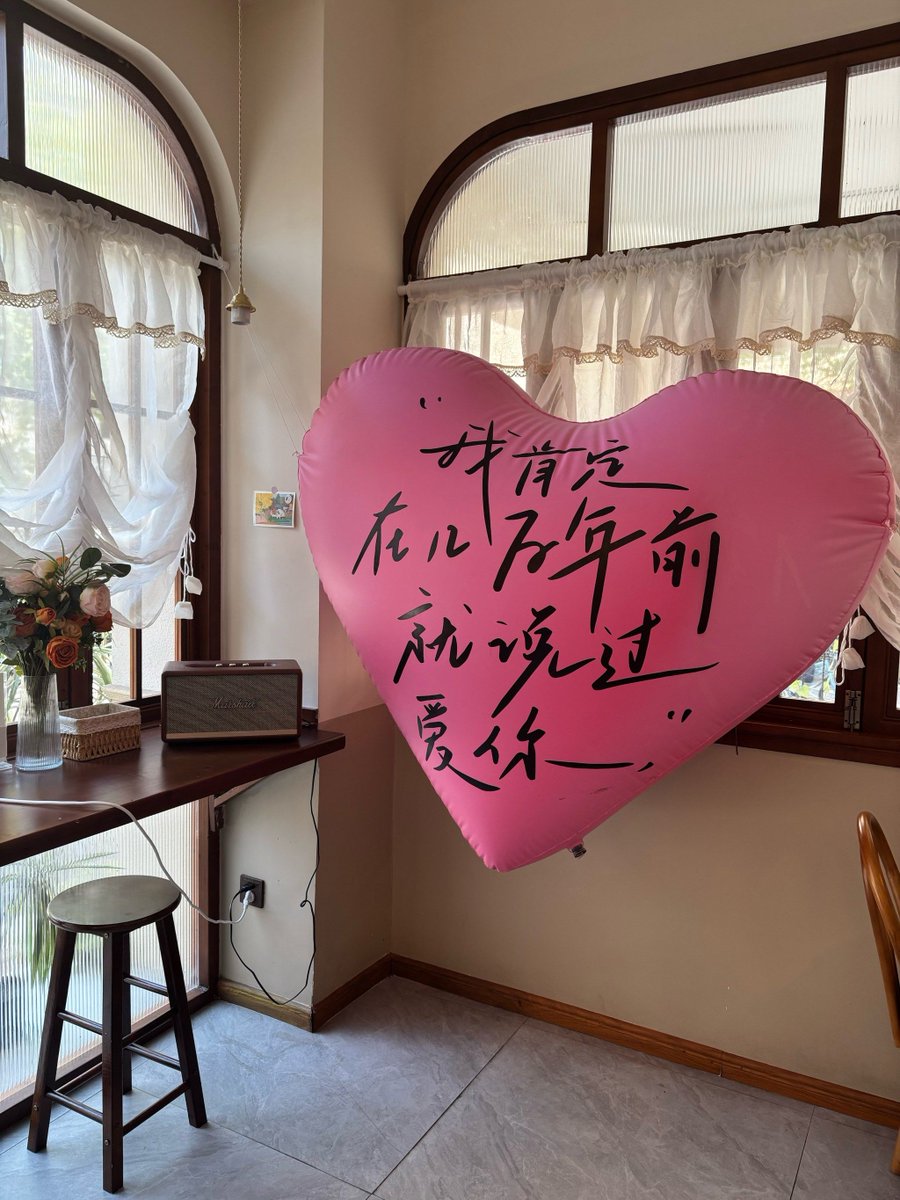 “我肯定
在几百年前
就说过
爱你”
Marshall